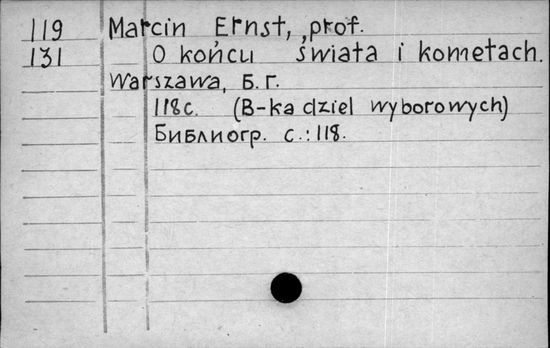 119 Marcin Ernst, prof.
131 O końcu świata i kometach.
Warszawa, Б.г.
118с. (B-ka dziel wyborowych)
Библиогр. с.:118.